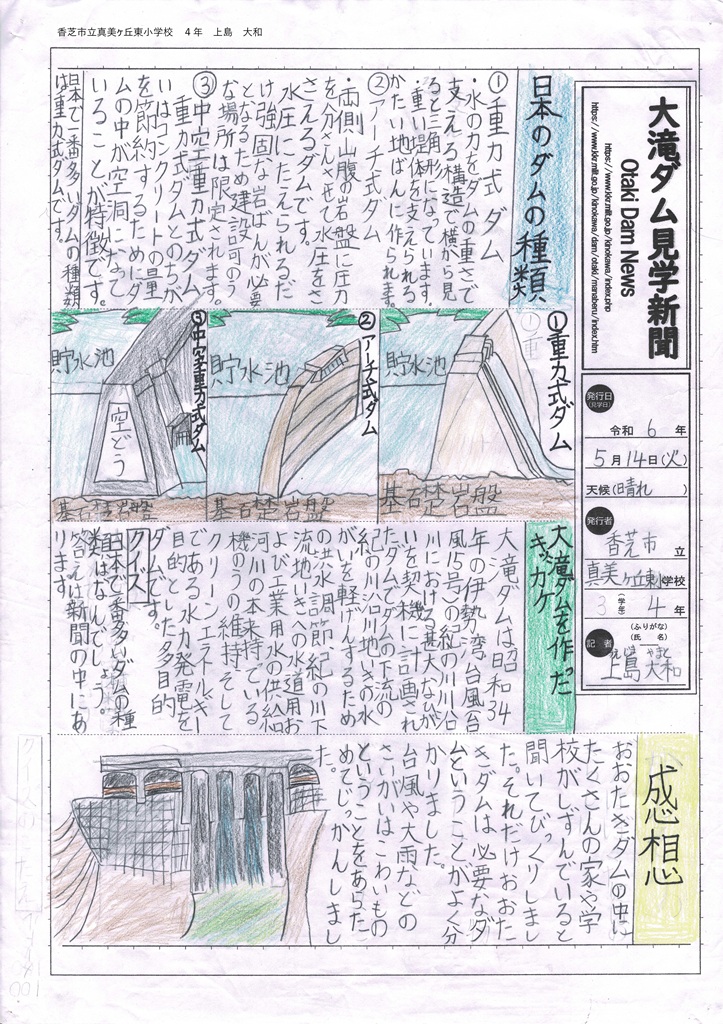 香芝市立真美ヶ丘東小学校　４年　上島　大和
大滝ダム見学新聞
Otaki Dam News
https://www.kkr.mlit.go.jp/kinokawa/index.php
https://www.kkr.mlit.go.jp/kinokawa/dam/otaki/manaberu/index.htm
発行日
(見学日)
令和 6 年
5月14日(火)
天候(晴れ)
発行者
香芝市 立
真美ヶ丘東小学校
(学年)
4年
記者
(ふりがな)
(氏 名)
上島大和
日本のダムの種類
①重力式ダム
・水の力をダムの重さで
支える構造で横から見
ると三角形になっています。
・重い堤体を支えられる
かたい地ばんに作られます。
②アーチ式ダム
・両側山腹の岩盤に圧力
を分さんさせて水圧をさ
さえるダムです。
水圧にたえられるだ
け強固な岩ばんが必要
となるため建設可のう
な場所は限定されます。
③中空重力式ダム
重力式ダムとのちが
いはコンクリートの量
を節約するためにダ
ムの中が空洞になって
いることが特徴です。
日本で一番多いダムの種類
は重力式ダムです。
①重力式ダム
貯水池
基石楚岩盤
②アーチ式ダム
貯水池
基石楚岩盤
③中空重力式ダム
貯水池
空どう
基石楚岩盤
大滝ダムを作った
キッカケ
大滝ダムは昭和34
年の伊勢湾台風(台
風15号)の紀の川
川における甚大なひが
いを契機に計画され
たダムでダムの下流の
紀の川沿川地いきの水
がいを軽げんするため
の洪水調節、紀の川下
流地いきへの水道用お
よび工業用水の供給
河川の本来持っている
機のうの維持そして
クリーンエネルギー
である水力発電を
目的とした多目的
ダムです。
クイズ
日本で一番多いダムの種
類はなんでしょう。
答えは新聞の中にあ
ります。
感想
おおたきダムの中に
たくさんの家や学
校がしずんでいると
聞いてびっくりしまし
た。それだけおおた
きダムは必要なダ
ムということがよく分
かりました。
台風や大雨などの
さいがいはこわいもの
ということをあらた
めてじっかんしまし
た。